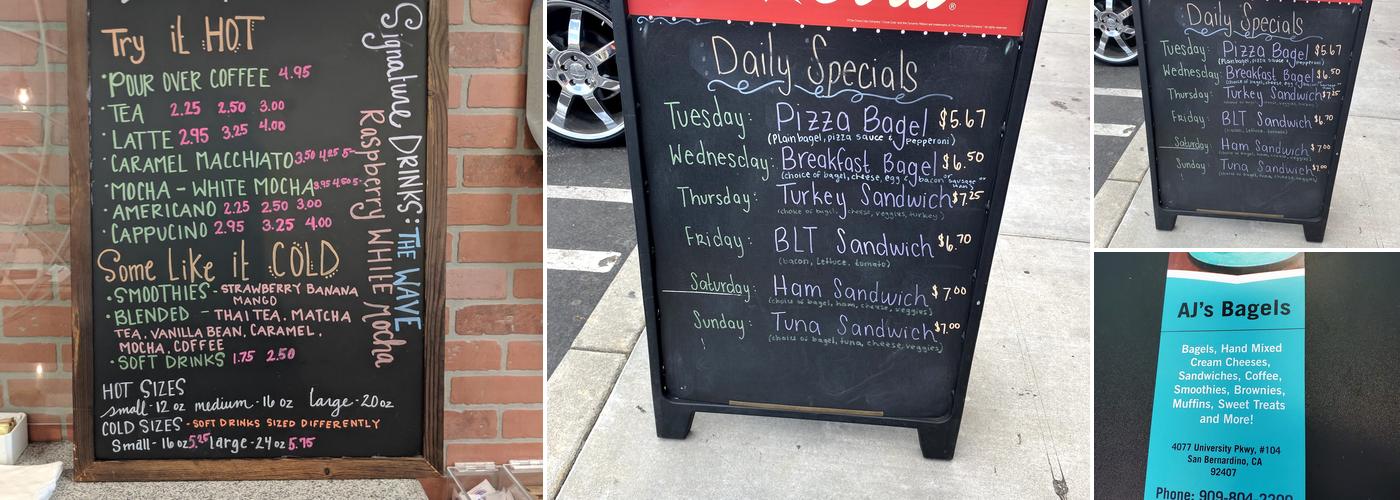 Try it HOT
·POUR OVER COFFEE 4.95
·TEA 2.25 2.50 3.00
·LATTE 2.95 3.25 4.00
·CARAMEL MACCHIATO 3.50 4.25 5-
·MOCHA - WHITE MOCHA 3.95 4.50 5-
·AMERICANO 2.25 2.50 3.00
·CAPPUCINO 2.95 3.25 4.00
Some Like it COLD
·SMOOTHIES - STRAWBERRY BANANA
MANGO
·BLENDED - THAI TEA, MATCHA
TEA, VANILLA BEAN, CARAMEL,
MOCHA, COFFEE
·SOFT DRINKS 1.75 2.50
HOT SIZES
small-12 oz medium-16 oz large-20oz
COLD SIZES - SOFT DRINKS SIZED DIFFERENTLY
Small-16 oz 5.25 large-24 oz 5.75
Signature DRINKS: THE WAVE
Raspberry WHITE Mocha
Daily Specials
Tuesday: Pizza Bagel $5.67
(Plain bagel, pizza sauce & pepperoni)
Wednesday: Breakfast Bagel $6.50
(choice of bagel, cheese, egg & bacon or sausage or ham)
Thursday: Turkey Sandwich $7.25
(choice of bagel, cheese, veggies, turkey)
Friday: BLT Sandwich $6.70
(bacon, lettuce, tomato)
Saturday: Ham Sandwich $7.00
(choice of bagel, ham, cheese, veggies)
Sunday: Tuna Sandwich $7.00
(choice of bagel, tuna, cheese, veggies)
Daily Specials
Tuesday: Pizza Bagel $5.67
(Plain bagel, pizza sauce & pepperoni)
Wednesday: Breakfast Bagel $6.50
Thursday: Turkey Sandwich $7.25
Friday: BLT Sandwich $6.70
(bacon, lettuce, tomato)
Saturday: Ham Sandwich $7.00
Sunday: Tuna Sandwich $7.00
AJ's Bagels
Bagels, Hand Mixed
Cream Cheeses,
Sandwiches, Coffee,
Smoothies, Brownies,
Muffins, Sweet Treats
and More!
4077 University Pkwy, #104
San Bernardino, CA
92407
Phone: 909-804-